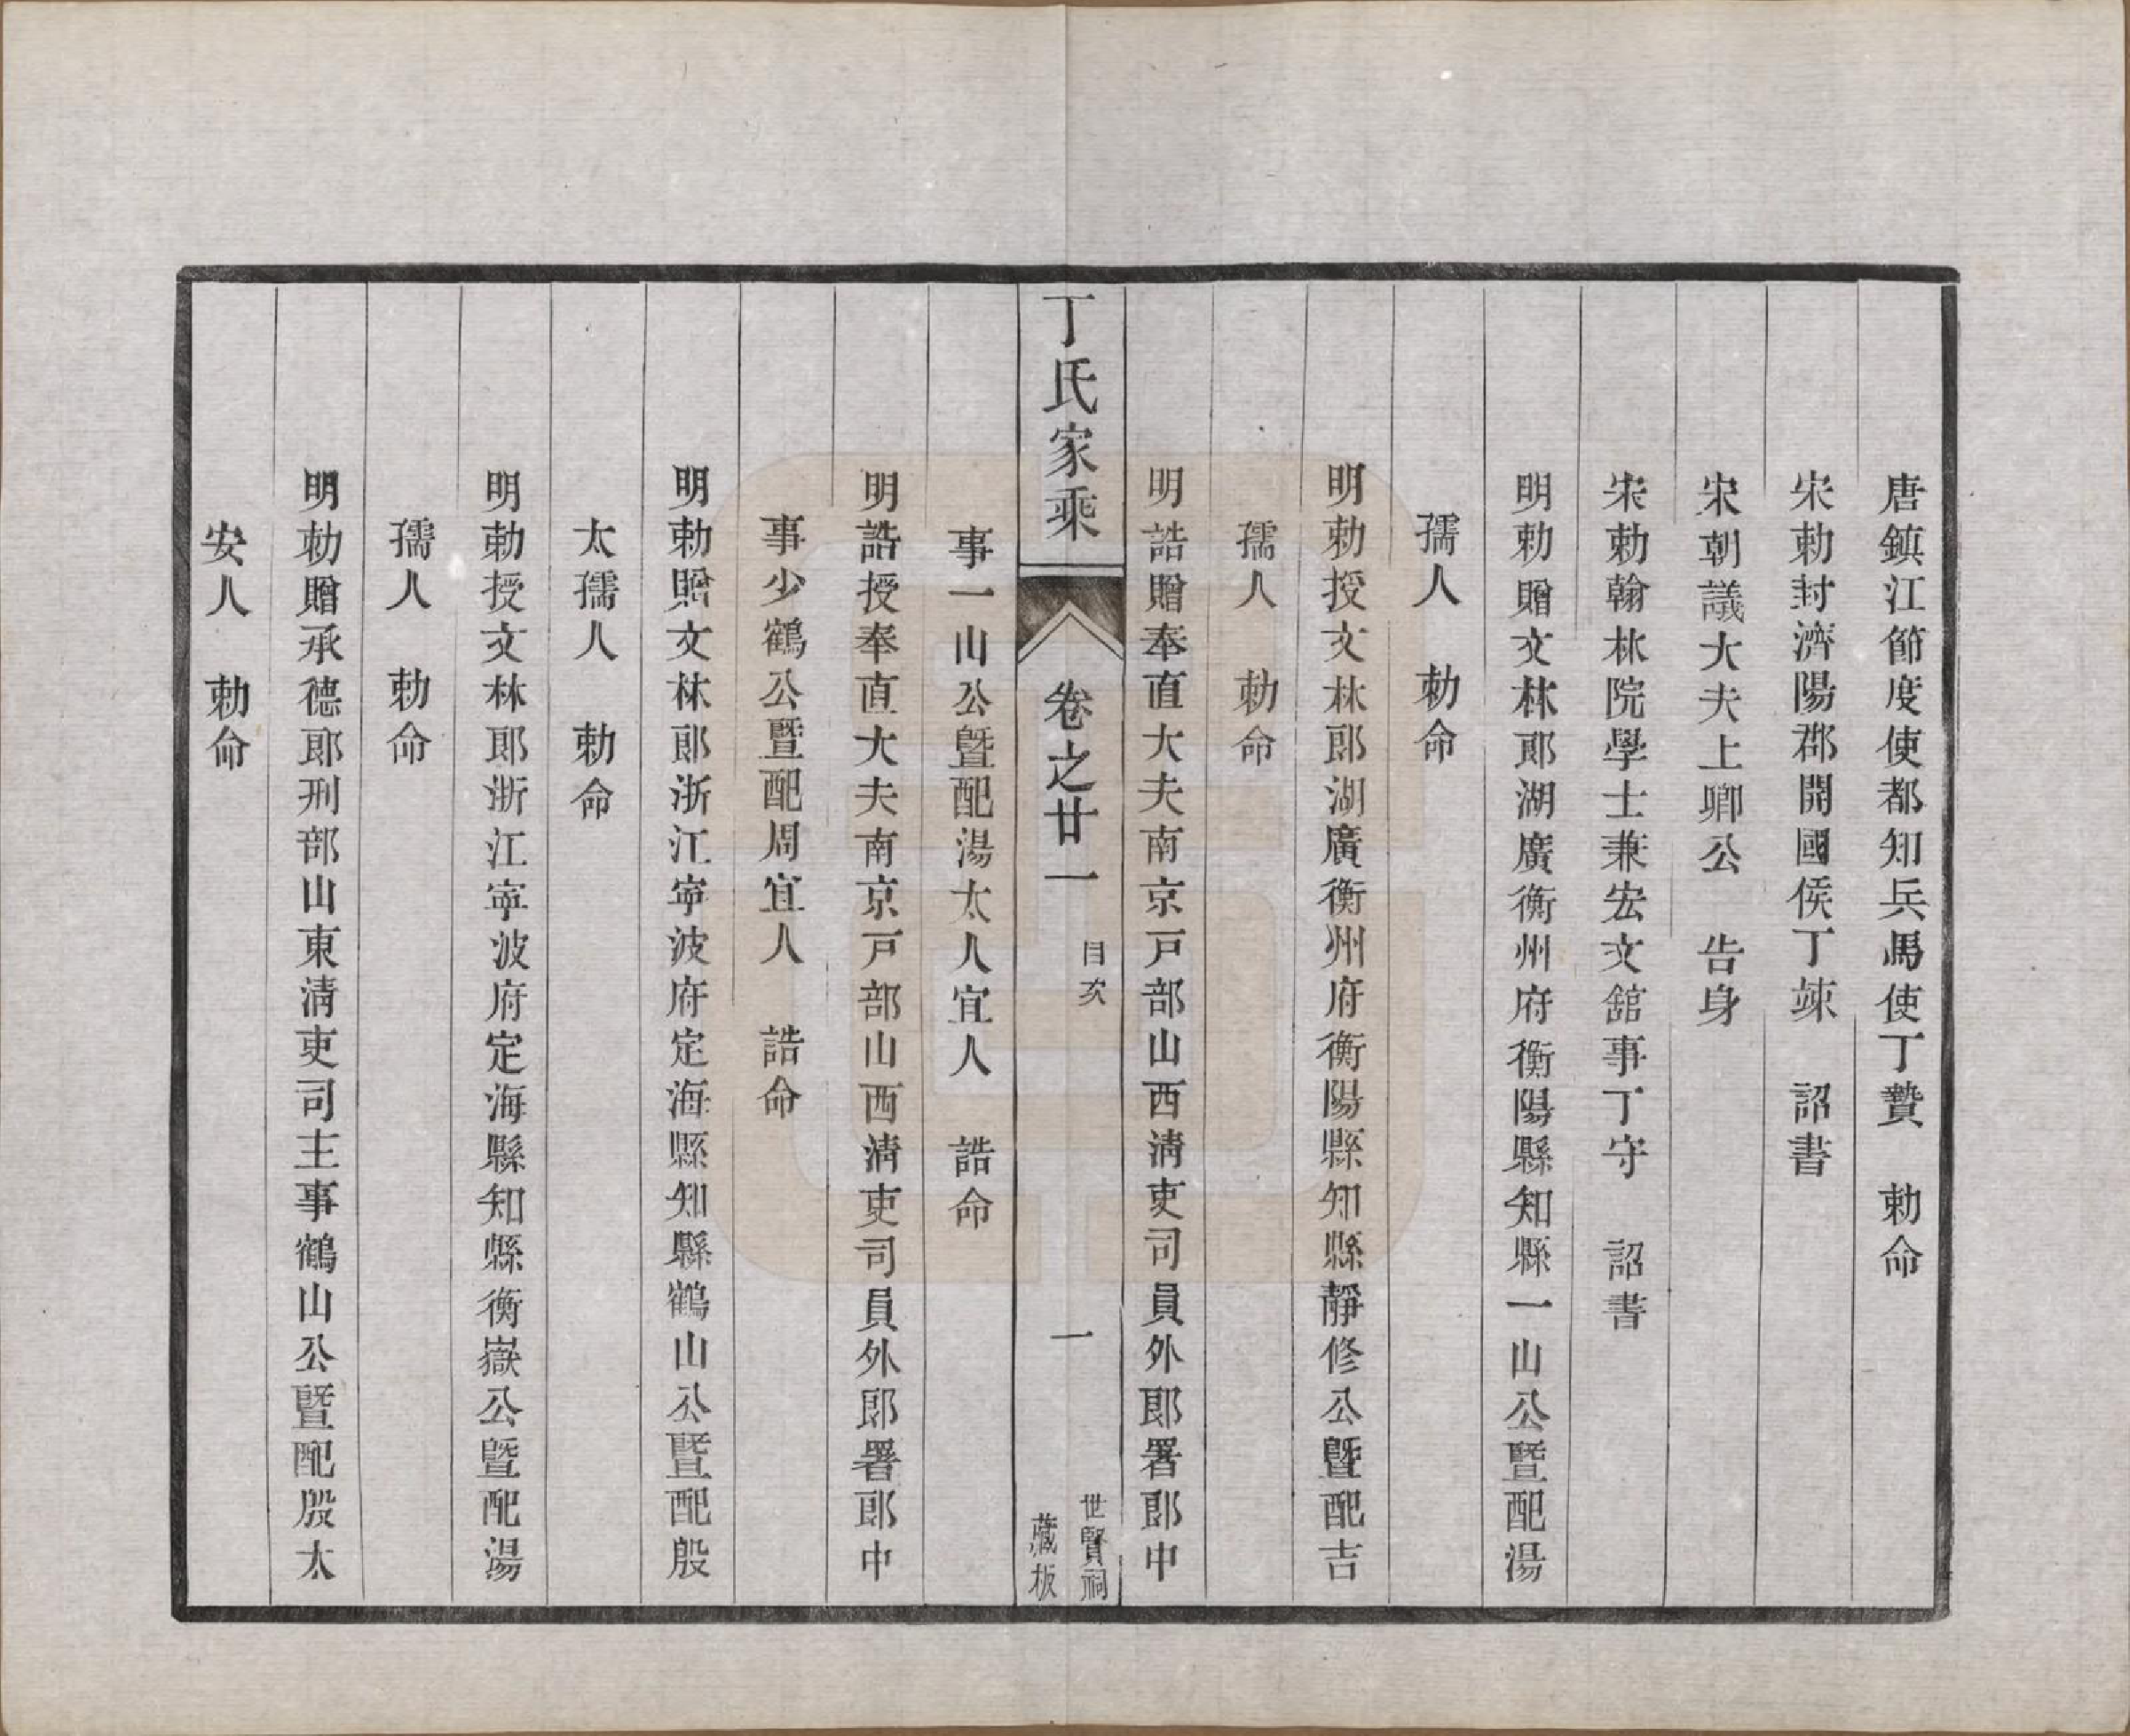 唐鎮江節度使都知兵馬使丁贊　勅命
宋勅封濟陽郡開國侯丁竦　詔書
宋朝議大夫上卿公　告身
宋勅翰林院學士兼宏文舘事丁守　詔書
明勅贈文林郎湖廣衡州府衡陽縣知縣一山公暨配湯
孺人　勅命
明勅授文林郎湖廣衡州府衡陽縣知縣靜修公暨配吉
孺人　勅命
明誥贈奉直大夫南京戸部山西淸吏司員外郎署郎中
丁氏家乘
卷之廿一
目次
一
世賢祠
藏板
事一山公暨配湯太人宜人　誥命
明誥授奉直大夫南京戸部山西淸吏司員外郎署郎中
事少鶴公暨配周宜人　誥命
明勅贈文林郎浙江寧波府定海縣知縣鶴山公暨配殷
太孺人　勅命
明勅授文林郎浙江寧波府定海縣知縣衡嶽公暨配湯
孺人　勅命
明勅贈承德郎刑部山東淸吏司主事鶴山公暨配殷太
安人　勅命